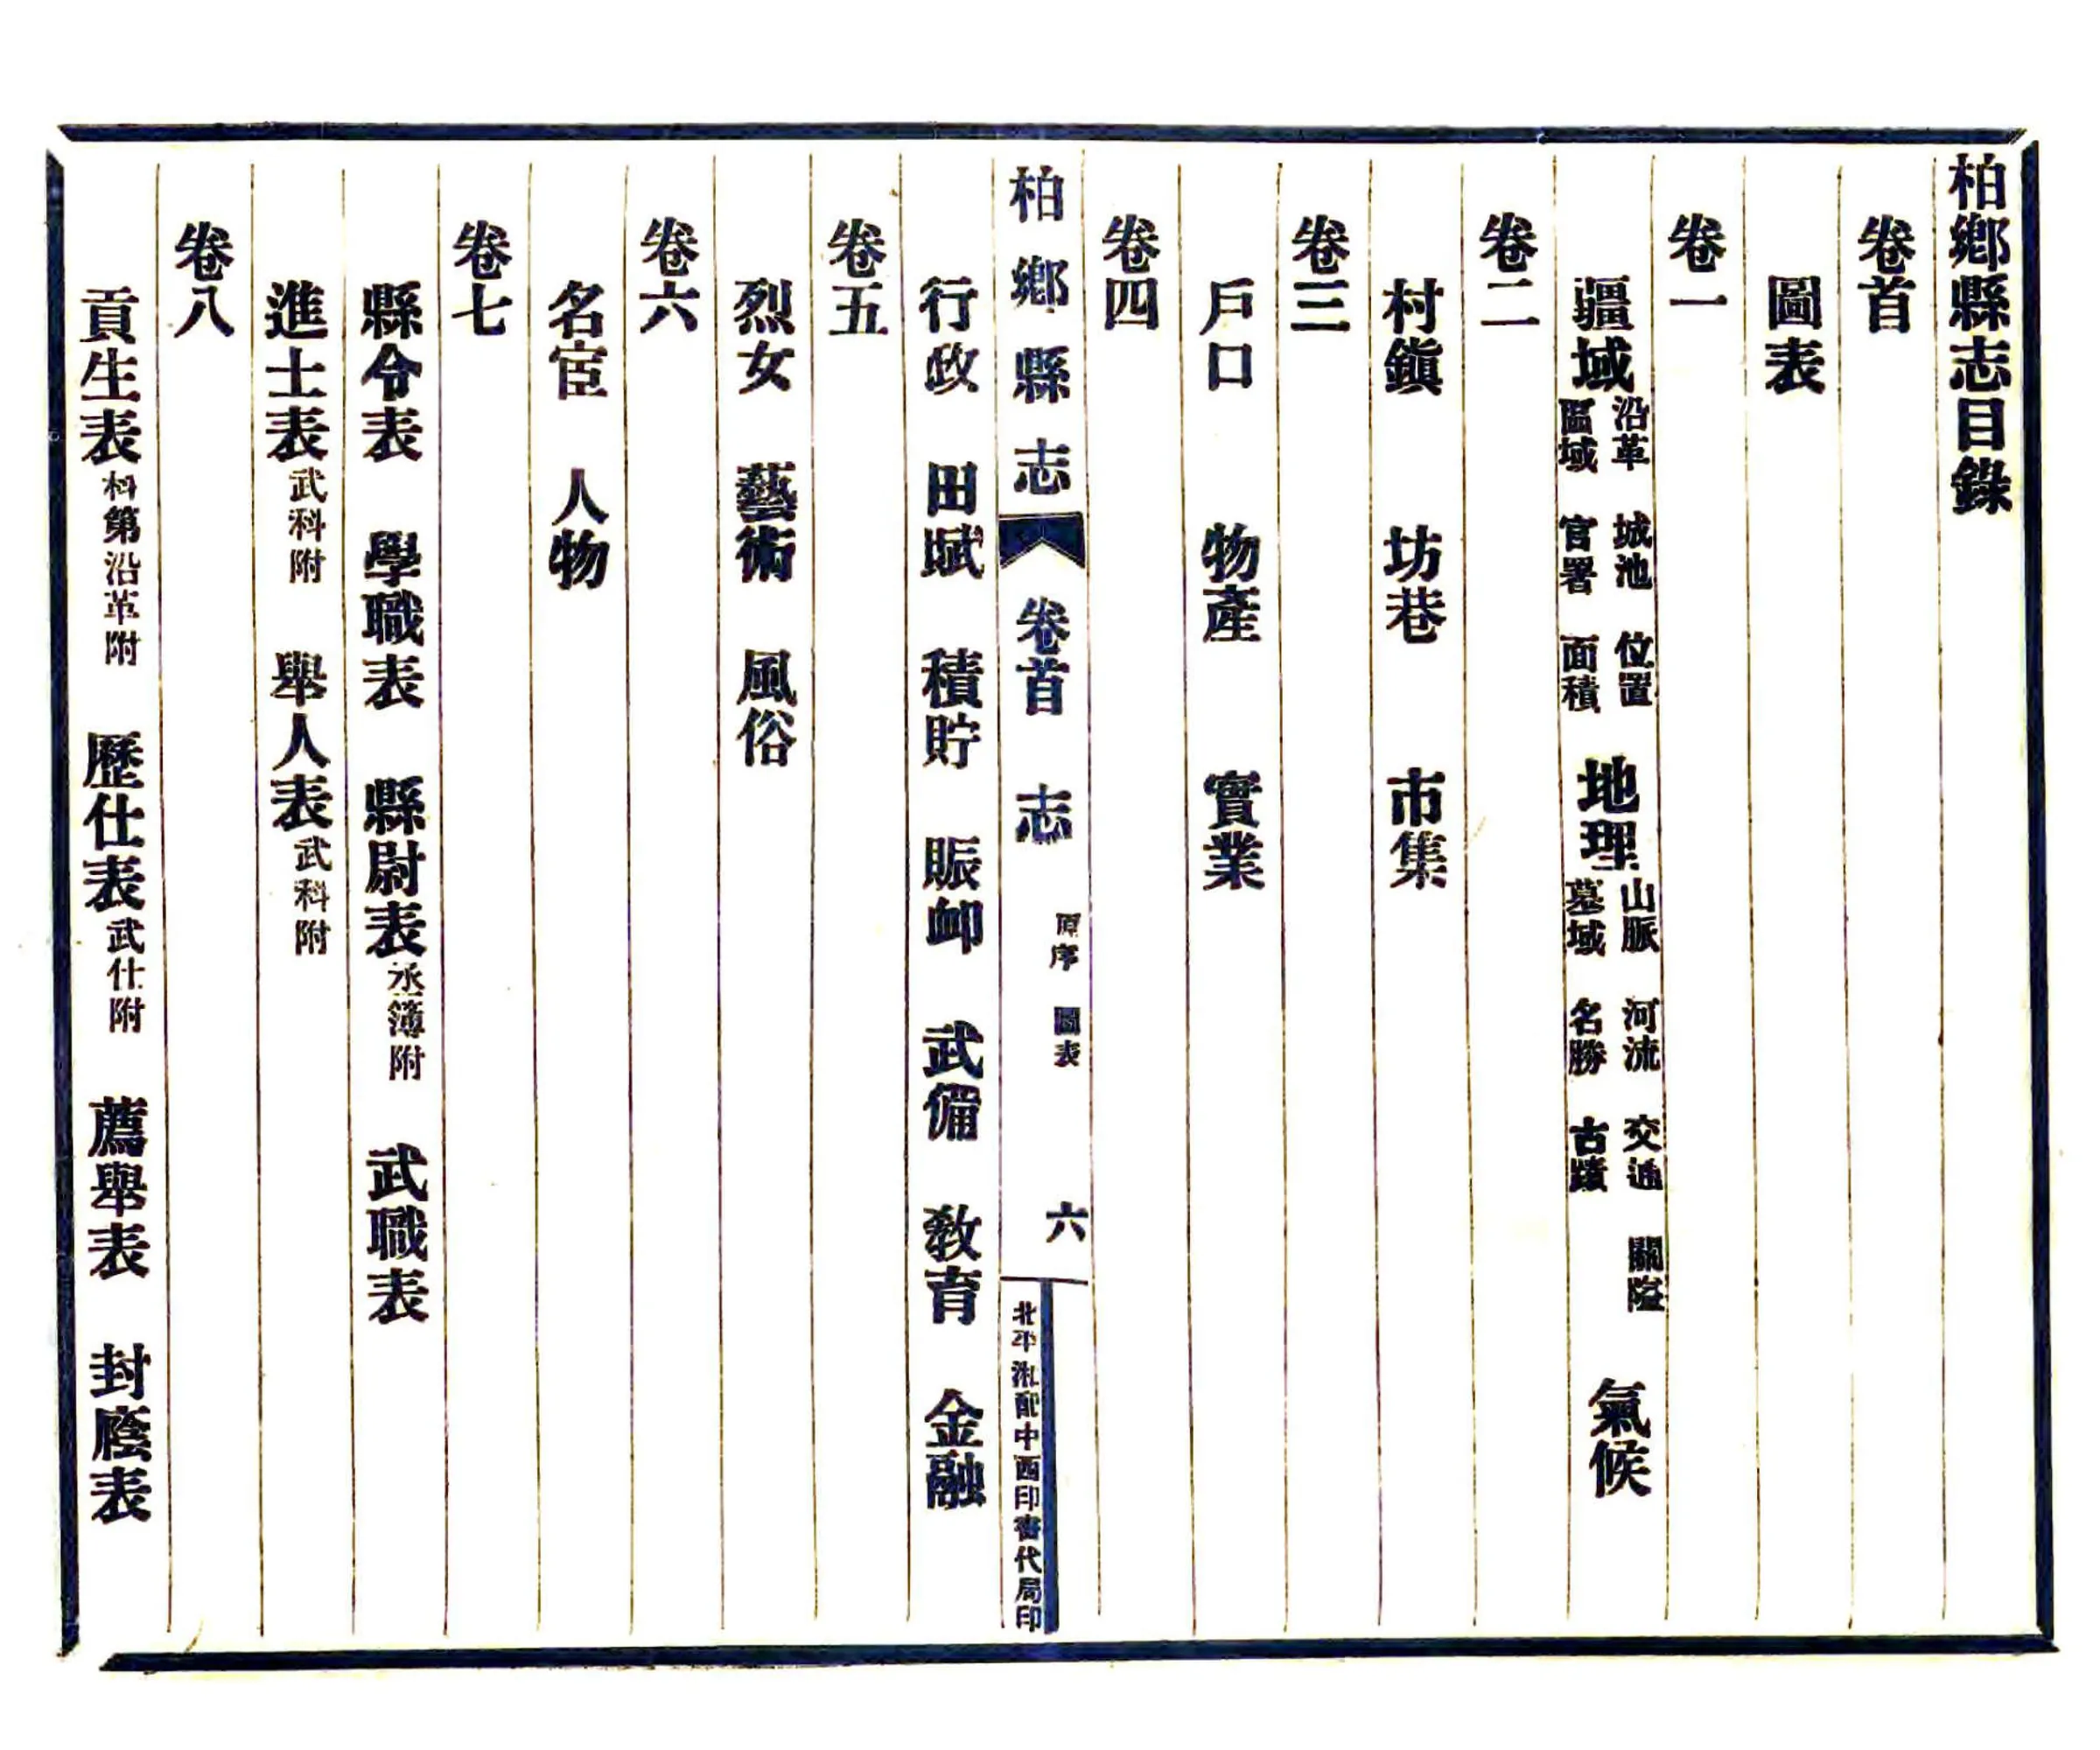 柏鄉縣志目錄
卷首
圖表
卷一
疆域 沿革 城池 位置 區域 官署 面積 地理 山脈 河流 交通 關隘 墓域 名勝 古蹟 氣候
卷二
村鎭 坊巷 市集
卷三
戶口 物產 實業
卷四
柏鄉縣志 卷首 志 原序 圖表 六 北平 配中西印書代局印
行政 田賦 積貯 賑卹 武備 敎育 金融
卷五
烈女 藝術 風俗
卷六
名宦 人物
卷七
縣令表 學職表 縣尉表 丞簿附 武職表
進士表 武科附 舉人表 武科附
卷八
貢生表 科第沿革附 歷仕表 武仕附 薦舉表 封廕表